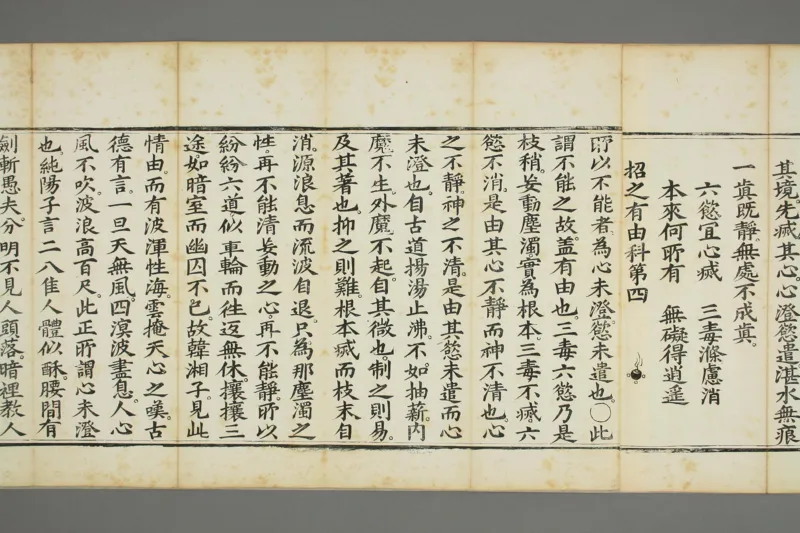 其境先㓕其心心澄慾遣湛水無痕
一眞既靜無處不成眞。
六慾宜心㓕　三毒滌慮消
本來何所有　無礙得逍遥
招之有由科第四
所以不能者。為心未澄。慾未遣也。〇此
謂不能之故。盖有由也。三毒六慾乃是
枝稍。妄動塵濁實為根本。三毒不㓕。六
慾不消。是由其心不靜而神不清也。心
之不靜。神之不清。是由其慾未遣而心
未澄也。自古道揚湯止沸。不如抽薪。内
魔不生。外魔不起。自其微也。制之則易。
及其著也。抑之則難。根本㓕而枝末自
消。源浪息而流波自退。只為那塵濁之
性。再不能清。妄動之心。再不能靜。所以
紛紛六道。似車輪而徃返無休。攘攘三
途。如暗室而幽囚不已。故韓湘子。見此
情由。而有波渾性海。雲掩天心之嘆。古
德有言。一旦天無風。四溟波盡息。人心
風不吹。波浪高百尺。此正所謂心未澄
也純陽子言二八佳人體似酥。腰間有
劍斬愚夫分明不見人頭落。暗裡教人